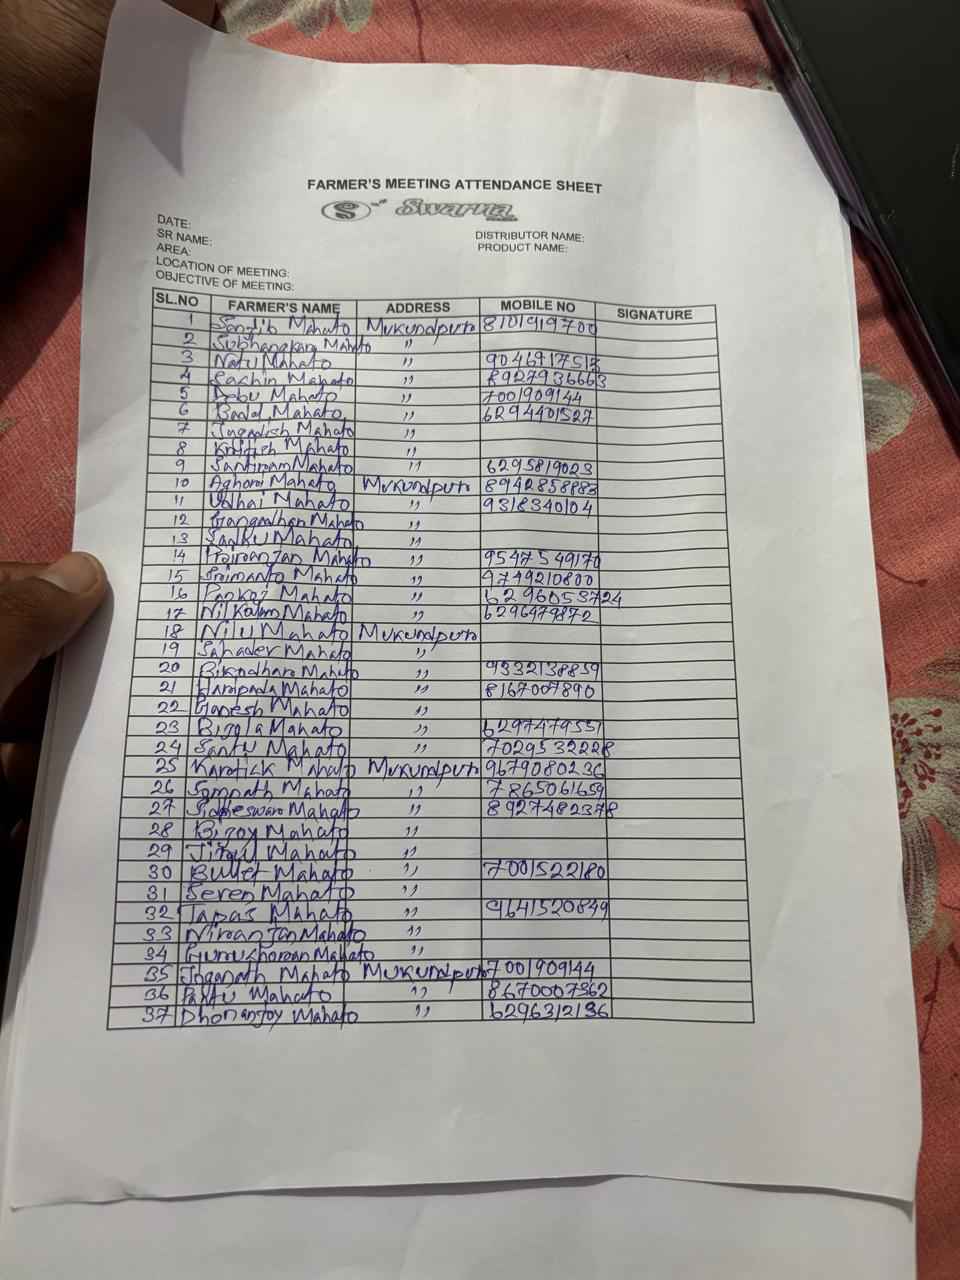 FARMER'S MEETING ATTENDANCE SHEET
S Swarna
DATE:
SR NAME: DISTRIBUTOR NAME:
AREA: PRODUCT NAME:
LOCATION OF MEETING:
OBJECTIVE OF MEETING:
SL.NO FARMER'S NAME ADDRESS MOBILE NO SIGNATURE
1 Sandib Mahato Mukundpur 8101919700
2 Subhankar Mahato ,,
3 Natu Mahato ,, 9046917517
4 Sachin Mahato ,, 8927936663
5 Debu Mahato ,, 7001909144
6 Badal Mahato ,, 6294401527
7 Jagadish Mahato ,,
8 Mahato ,,
9 Santiram Mahato ,, 6295819023
10 Aghori Mahato Mukundpur 8942858883
11 Mahato ,, 9318340104
12 Mahato ,,
13 Mahato ,,
14 Mahato ,, 9547549170
15 Srimanto Mahato ,, 9749210800
16 Pankaj Mahato ,, 6296053724
17 Nilkalam Mahato ,, 6296479872
18 Nilu Mahato Mukundpur
19 Sahadev Mahato ,,
20 Mahato ,, 9332138859
21 Haripada Mahato ,, 8167007890
22 Ganesh Mahato ,,
23 Mahato ,, 6297479551
24 Santu Mahato ,, 7029532228
25 Karatick Mahato Mukundpur 9679080236
26 Somnath Mahato ,, 7865061659
27 Mahato ,, 8927482378
28 Bijoy Mahato ,,
29 Mahato ,,
30 Bullet Mahato ,, 7001522180
31 Seren Mahato ,,
32 Tapas Mahato ,, 9641520849
33 Niranjan Mahato ,,
34 Mahato ,,
35 Joganath Mahato Mukundpur 7001909144
36 Mahato ,, 8670007362
37 Dhonanjoy Mahato ,, 6296312136